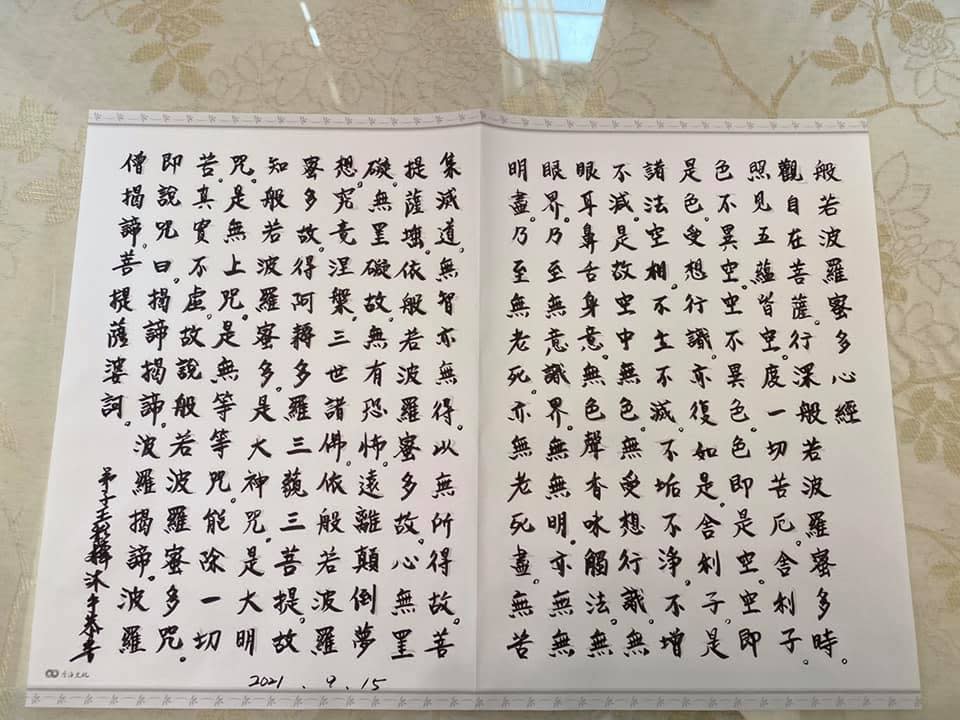 般若波羅蜜多心經
觀自在菩薩。行深般若波羅蜜多時。
照見五蘊皆空。度一切苦厄。舍利子。
色不異空。空不異色。色即是空。空即
是色。受想行識。亦復如是。舍利子。是
諸法空相。不生不滅。不垢不淨。不增
不減。是故空中無色。無受想行識。無
眼耳鼻舌身意。無色聲香味觸法。無
眼界。乃至無意識界。無無明。亦無無
明盡。乃至無老死。亦無老死盡。無苦
集滅道。無智亦無得。以無所得故。菩
提薩埵。依般若波羅蜜多故。心無罣
礙。無罣礙故。無有恐怖。遠離顛倒夢
想。究竟涅槃。三世諸佛。依般若波羅
蜜多故。得阿耨多羅三藐三菩提。故
知般若波羅蜜多。是大神咒。是大明
咒。是無上咒。是無等等咒。能除一切
苦。真實不虛。故說般若波羅蜜多咒。
即說咒曰。揭諦揭諦。波羅揭諦。波羅
僧揭諦。菩提薩婆訶。
弟子王沐手恭書
2021.9.15